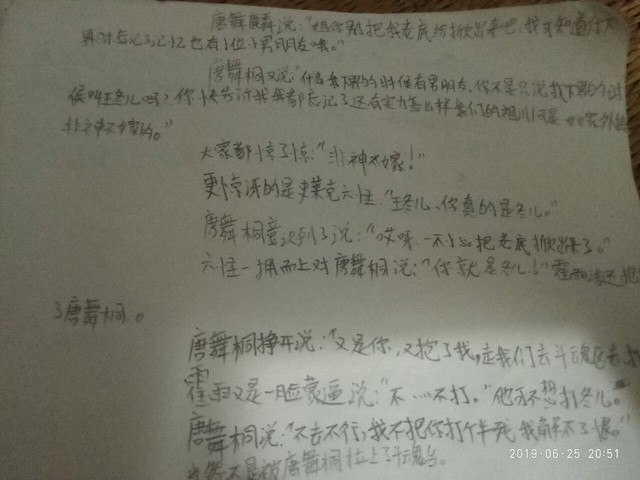 唐舞麟说：“姐你别把我老底给掀出来吧，我可知道你下
界时忘记了记忆也有1位小男朋友哦。”
唐舞桐又说“什么我下界的时候有男朋友，你不是只说我下界的时
候叫王冬儿吗？你快告诉我我都忘记了还有实力怎么样我们的祖训可是
非神不嫁的。”
大家都惊了惊：“非神不嫁！”
更惊讶的是史莱克六怪：“王冬儿、你真的是冬儿。”
唐舞桐意识到了说：“哎呀、一不小心把老底掀出来了。”
六怪一拥而上对唐舞桐说：“你就是冬儿！”霍雨浩还抱
了唐舞桐。
唐舞桐挣开说：“又是你，又抱了我，走我们去斗魂区去
霍雨又是一脸蒙逼说：“不……不打。”他可不想打冬儿。
唐舞桐说：“不去不行，我不把你打个半死我解不了恨。
唐舞桐拉上了斗魂台。
2019-06-25 20:51